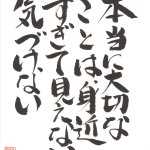 本当に大切な
ことは、身近
すぎて見えない
気づけない